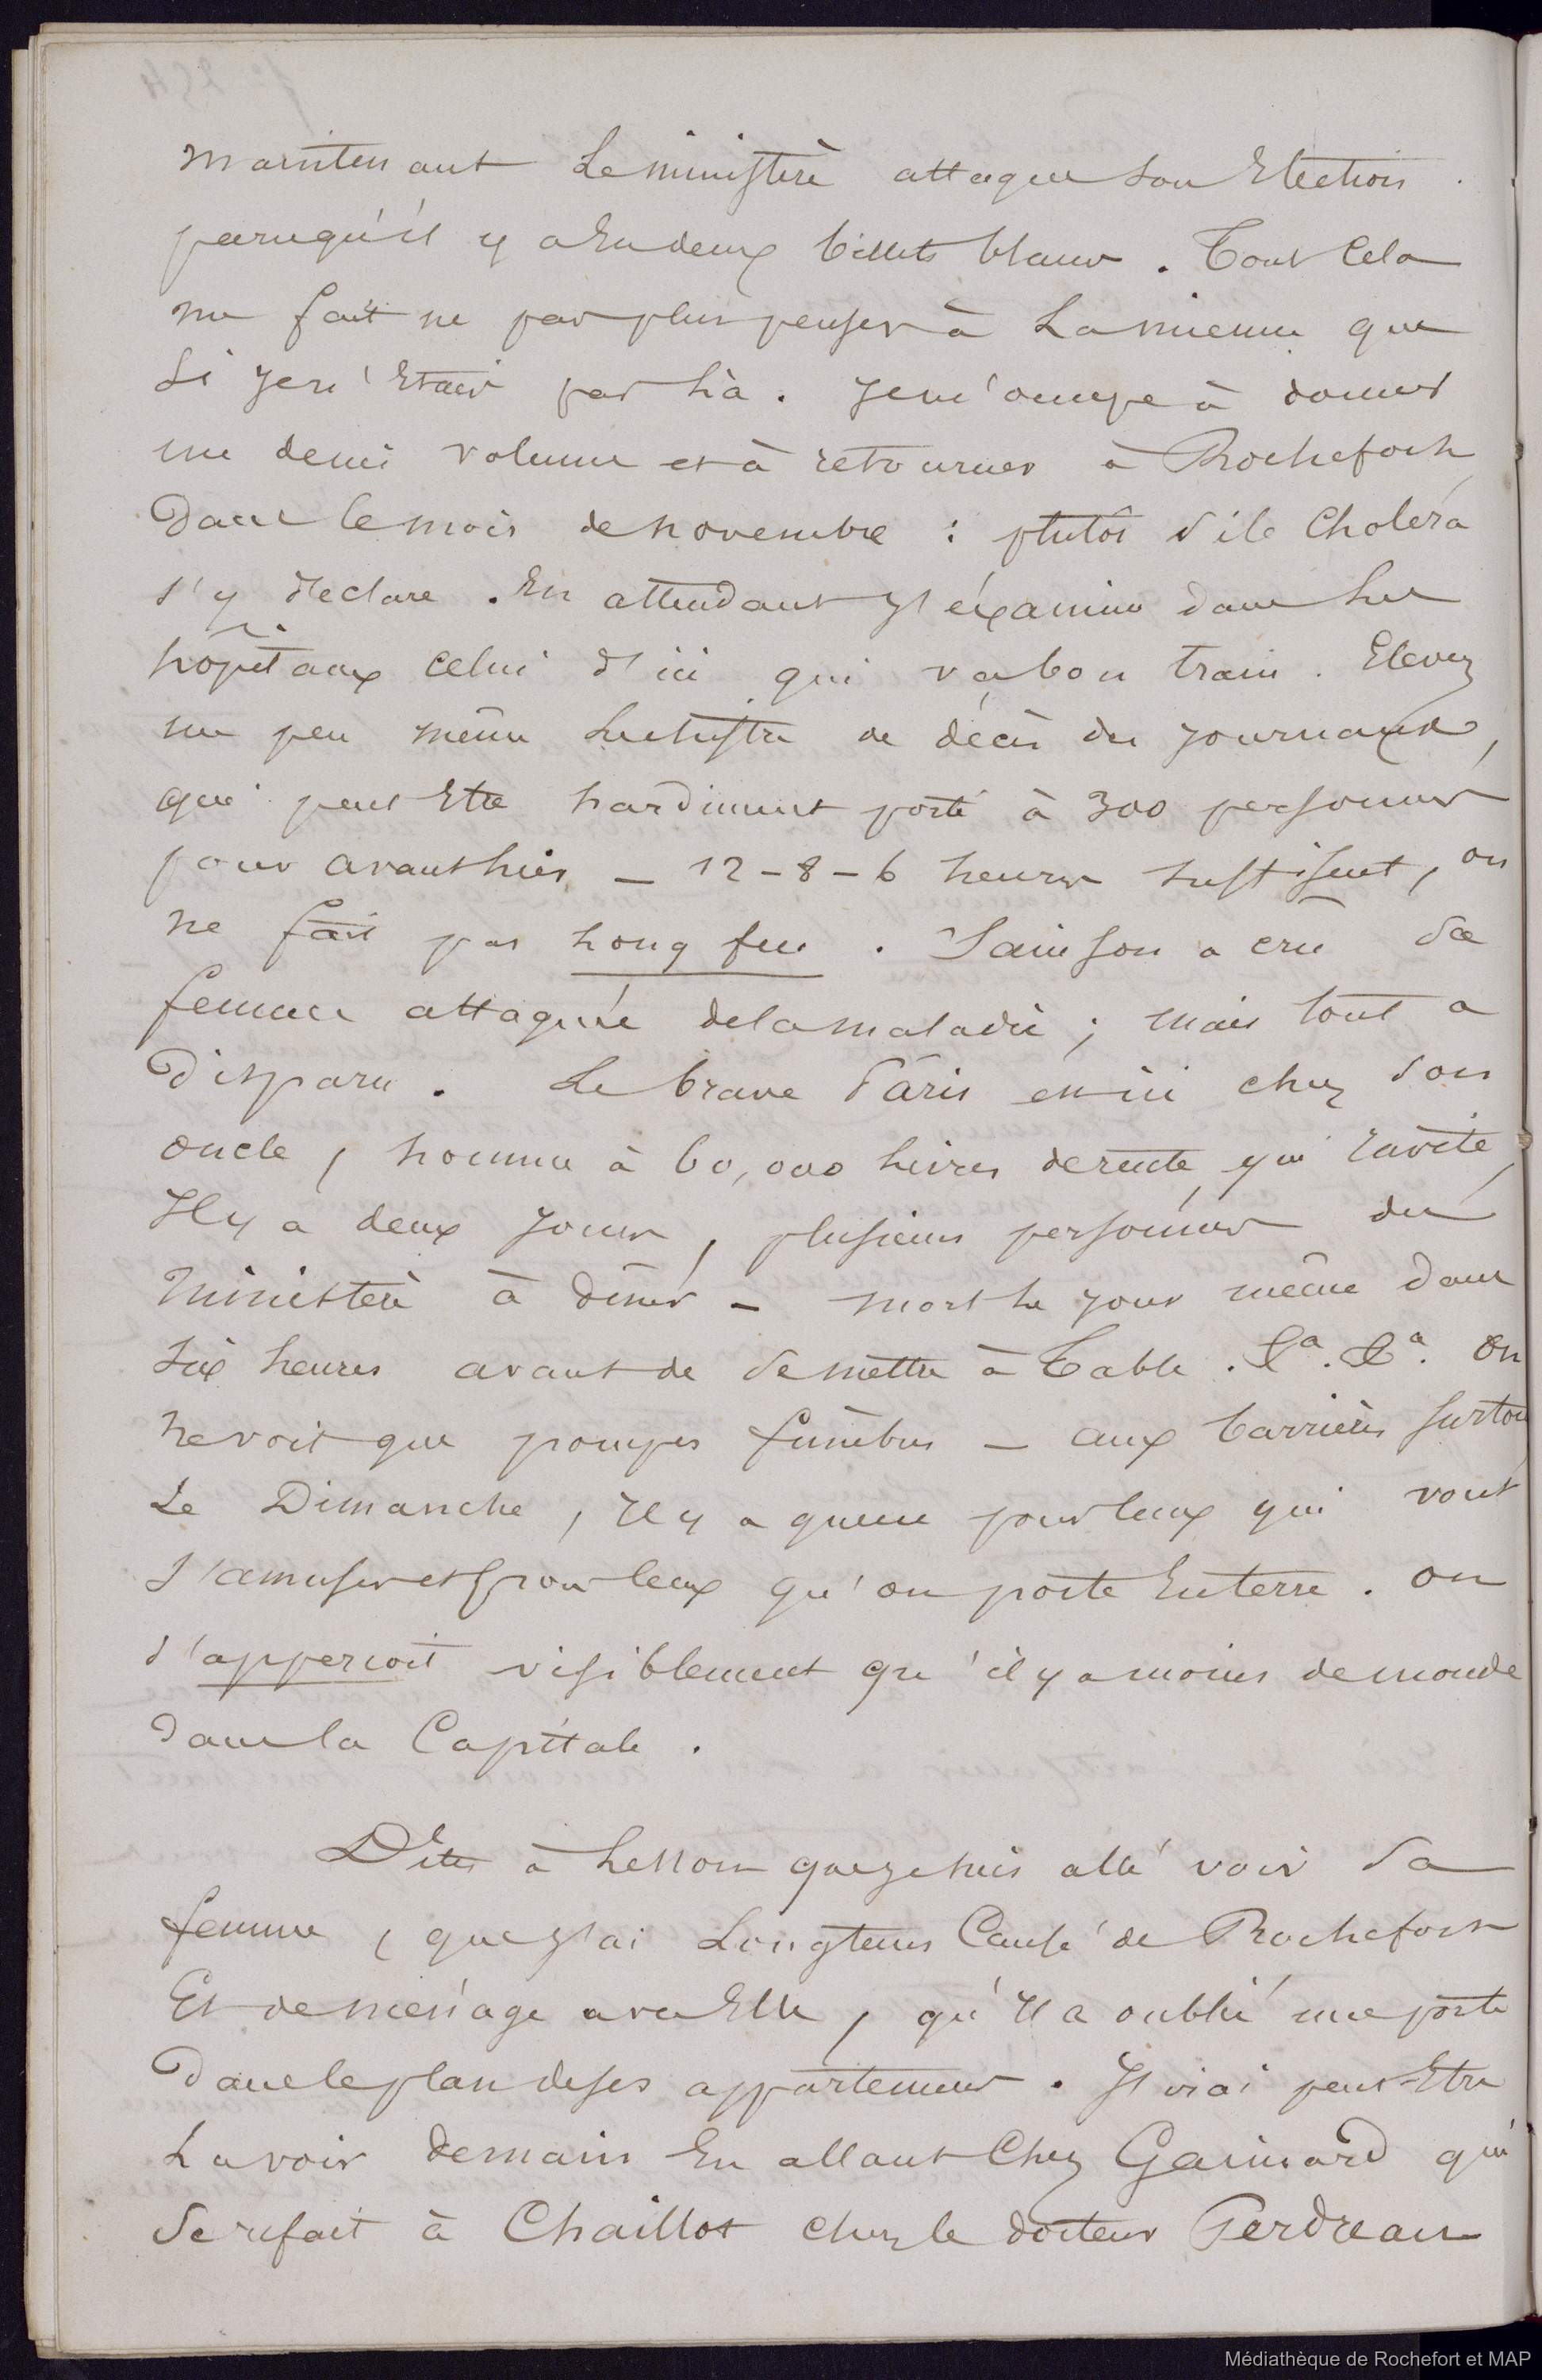 maintenant le ministère attaque son Election .
parcequ'il y a Eu deux billets blancs . Tout Cela
me fait ne pas plus penser à la mienne que
si je n'Etais pas là . je m'occupe à donner
un demi volume et à retourner à Rochefort
Dans le mois de novembre : plutôt si le Choléra
s'y déclare . En attendant j'éxamine dans les
hôpitaux celui d'ici qui va bon train . Elevez
un peu même le chiffre de décès des journaux,
qui peut Etre hardiment porté à 300 personnes
pour avanthier, – 12 – 8 – 6 heures suffisent, on
ne fait pas long feu . Sainson a cru sa
femme attaquée de la maladie ; mais tout a
Disparu . Le brave Pâris est ici chez son
oncle, homme à 60,000 livres de rente, qui invite,
Il y a deux jours, plusieurs personnes du
Ministère à dîner – mort le jour même dans
six heures avant de se mettre à Table . &a. &a. On
ne voit que pompes funèbres – aux barrières surtou
Le Dimanche, Il y a queue pour ceux qui vont
s'amuser et pour ceux qu'on porte En terre . On
s'apperçoit visiblement qu'il y a moins de monde
dans la Capitale .
Dites à Lesson que je suis allé voir sa
femme, que j'ai Longtems Causé de Rochefort
Et de ménage avec Elle, qu'Il a oublié une porte
Dans le plan de ses appartemens . J'irai peut-Etre
La voir demain En allant Chez Gaimard qui
se refait à Chaillot chez le docteur Perdreau
Médiathèque de Rochefort et MAP